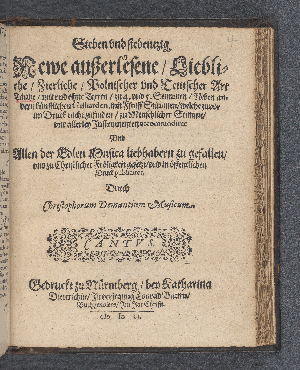 Sieben vnd siebentzig
Newe außerlesene / Liebli-
che / Zierliche / Polnischer vnd Teutscher Art
Täntze / mit vnd ohne Texten / zu 4. vnd 5. Stimmen / Neben an-
dern künstlichen Galliarden, mit Fünff Stimmen / welche zuvor
im Druck nicht gefunden / zu Menschlicher Stimme /
vnd allerley Instrumenten accommodirt
Vnd
Allen der Edlen Musica liebhabern zu gefallen /
vnd zu Ehrlicher Frölichkeit gesetzt / vnd in öffentlichen
Druck publiciret,
Durch
Christophorum Demantium Musicum.
CANTVS.
Gedruckt zu Nürmberg / bey Katharina
Dieterichin / In verlegung Conrad
Jm Jar Christi